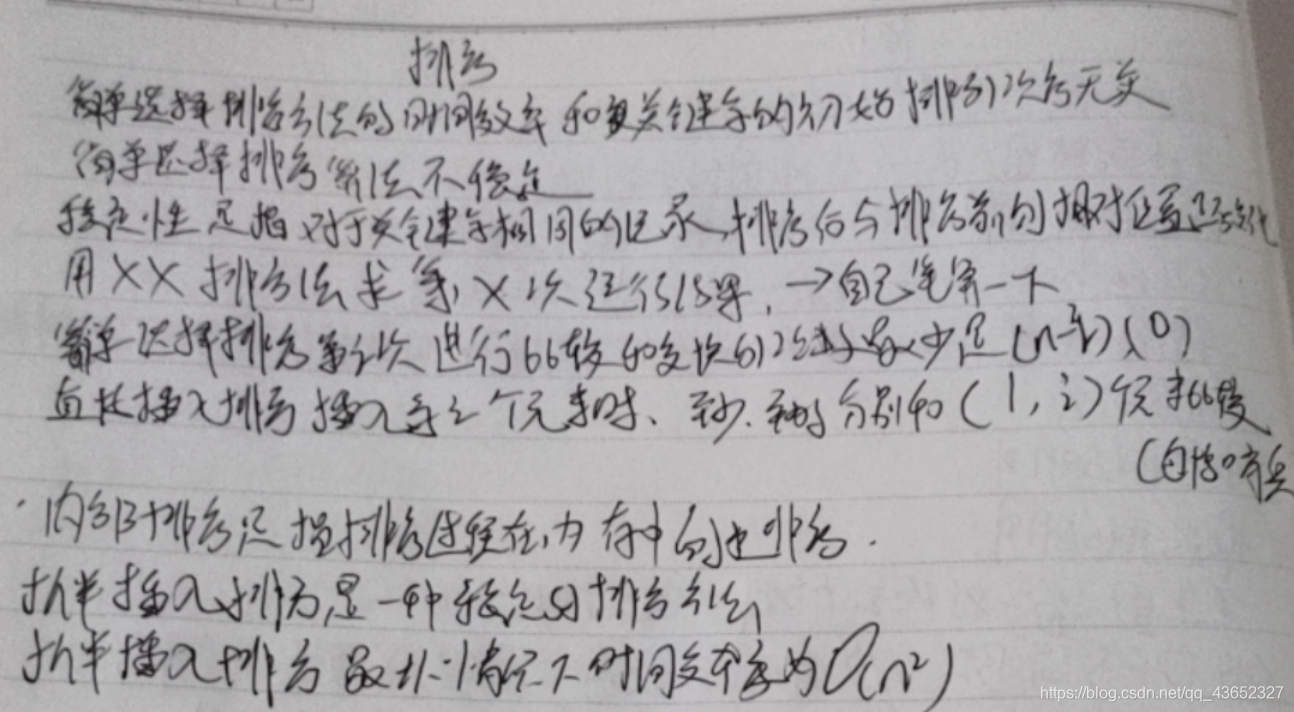 排序
简单选择排序算法的时间效率和关键字的初始排列次序无关
简单选择排序算法不稳定
稳定性是指对于关键字相同的记录,排序后与排序前的相对位置
用XX排序法求第X次运行结果,→自己笔算一下
简单选择排序第i次进行比较和交换的次数最少是(n-i)、(0)
直接插入排序插入第i个元素时、至少、至多分别和(1,i)个元素比较
(自
·内部排序是指排序过程在内存中的排序.
折半插入排序,是一种稳定的排序算法
折半插入排序最坏情况下时间复杂度为O(n²)
https://blog.csdn.net/qq_43652327